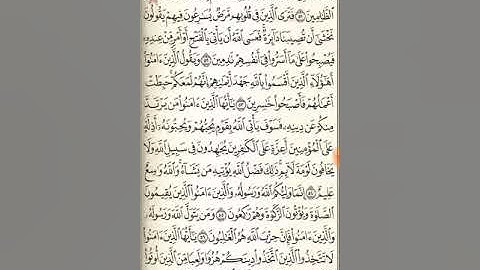 الظَّالِمِينَ ٥١ فَتَرَى الَّذِينَ فِي قُلُوبِهِم مَّرَضٌ يُسَارِعُونَ فِيهِمْ يَقُولُونَ
نَخْشَىٰ أَن تُصِيبَنَا دَائِرَةٌ فَعَسَى اللَّهُ أَن يَأْتِيَ بِالْفَتْحِ أَوْ أَمْرٍ مِّنْ عِندِهِ
فَيُصْبِحُوا عَلَىٰ مَا أَسَرُّوا فِي أَنفُسِهِمْ نَادِمِينَ ٥٢ وَيَقُولُ الَّذِينَ آمَنُوا
أَهَٰؤُلَاءِ الَّذِينَ أَقْسَمُوا بِاللَّهِ جَهْدَ أَيْمَانِهِمْ إِنَّهُمْ لَمَعَكُمْ حَبِطَتْ
أَعْمَالُهُمْ فَأَصْبَحُوا خَاسِرِينَ ٥٣ يَا أَيُّهَا الَّذِينَ آمَنُوا مَن يَرْتَدَّ
مِنكُمْ عَن دِينِهِ فَسَوْفَ يَأْتِي اللَّهُ بِقَوْمٍ يُحِبُّهُمْ وَيُحِبُّونَهُ أَذِلَّةٍ
عَلَى الْمُؤْمِنِينَ أَعِزَّةٍ عَلَى الْكَافِرِينَ يُجَاهِدُونَ فِي سَبِيلِ اللَّهِ وَلَا
يَخَافُونَ لَوْمَةَ لَائِمٍ ذَٰلِكَ فَضْلُ اللَّهِ يُؤْتِيهِ مَن يَشَاءُ وَاللَّهُ وَاسِعٌ
عَلِيمٌ ٥٤ إِنَّمَا وَلِيُّكُمُ اللَّهُ وَرَسُولُهُ وَالَّذِينَ آمَنُوا الَّذِينَ يُقِيمُونَ
الصَّلَاةَ وَيُؤْتُونَ الزَّكَاةَ وَهُمْ رَاكِعُونَ ٥٥ وَمَن يَتَوَلَّ اللَّهَ وَرَسُولَهُ
وَالَّذِينَ آمَنُوا فَإِنَّ حِزْبَ اللَّهِ هُمُ الْغَالِبُونَ ٥٦ يَا أَيُّهَا الَّذِينَ آمَنُوا
لَا تَتَّخِذُوا الَّذِينَ اتَّخَذُوا دِينَكُمْ هُزُوًا وَلَعِبًا مِّنَ الَّذِينَ أُوتُوا